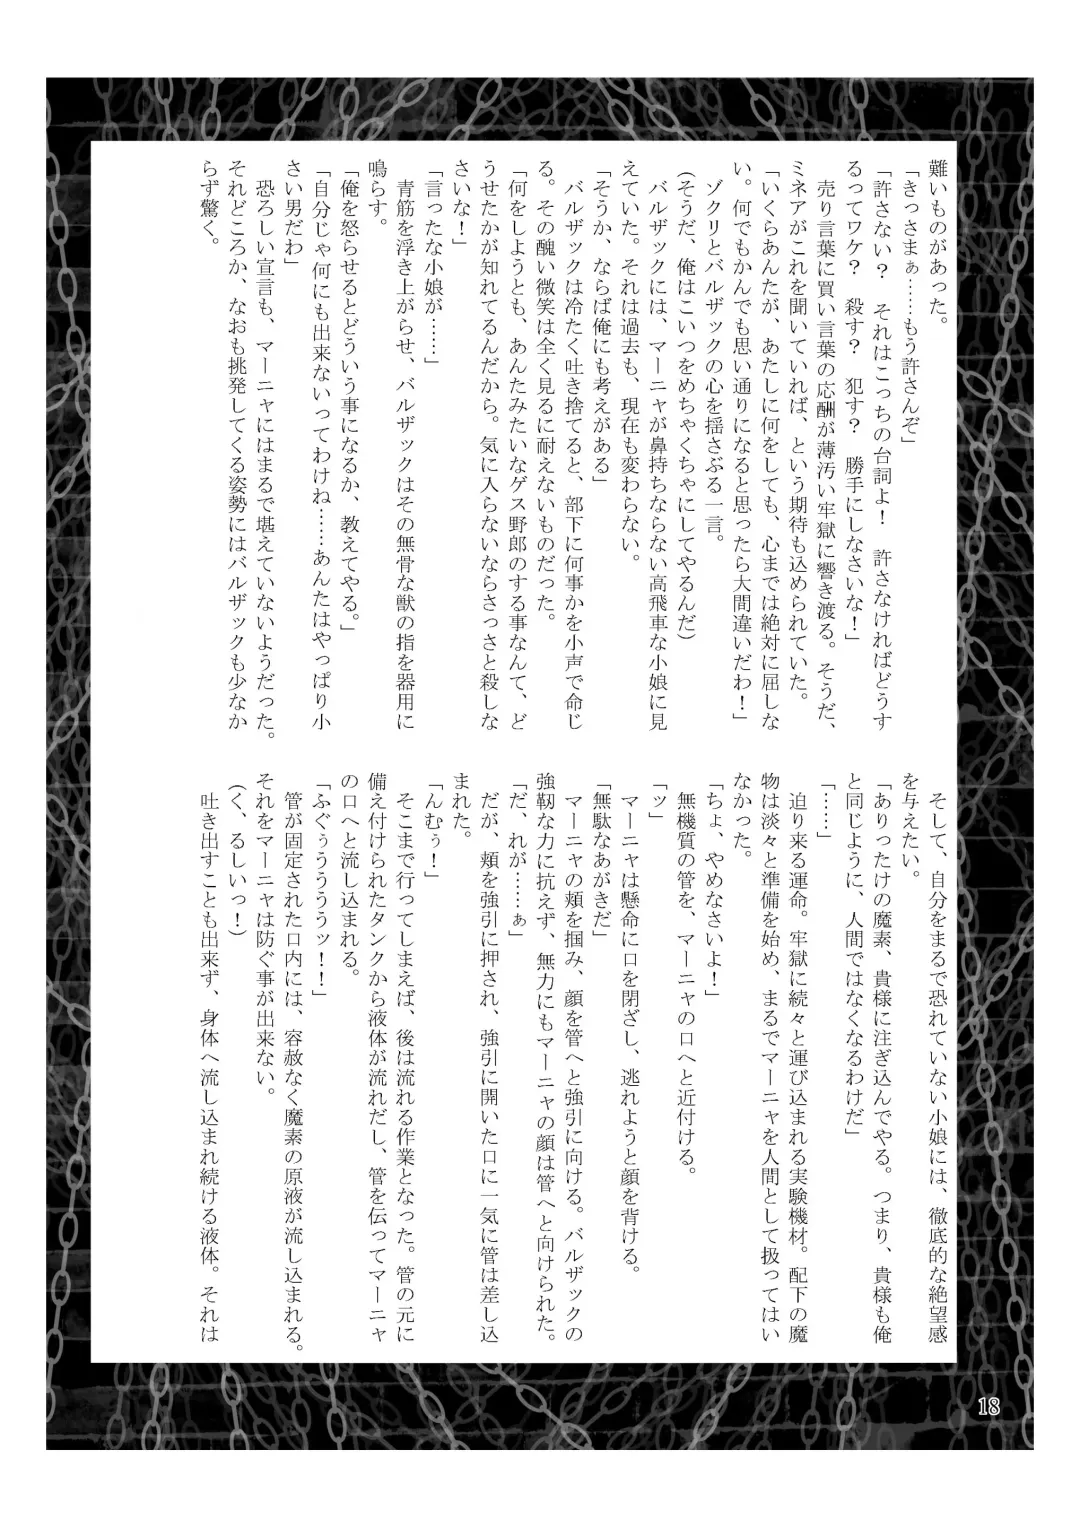 難いものがあった。
「きっさまぁ……もう許さんぞ」
「許さない？　それはこっちの台詞よ！　許さなければどうす
るってワケ？　殺す？　犯す？　勝手にしなさいな！」
　売り言葉に買い言葉の応酬が薄汚い牢獄に響き渡る。そうだ、
ミネアがこれを聞いていれば、という期待も込められていた。
「いくらあんたが、あたしに何をしても、心までは絶対に屈しな
い。何でもかんでも思い通りになると思ったら大間違いだわ！」
　ゾクリとバルザックの心を揺さぶる一言。
（そうだ、俺はこいつをめちゃくちゃにしてやるんだ）
　バルザックには、マーニャが鼻持ちならない高飛車な小娘に見
えていた。それは過去も、現在も変わらない。
「そうか、ならば俺にも考えがある」
　バルザックは冷たく吐き捨てると、部下に何事かを小声で命じ
る。その醜い微笑は全く見るに耐えないものだった。
「何をしようとも、あんたみたいなゲス野郎のする事なんて、ど
うせたかが知れてるんだから。気に入らないならさっさと殺しな
さいな！」
「言ったな小娘が……」
　青筋を浮き上がらせ、バルザックはその無骨な獣の指を器用に
鳴らす。
「俺を怒らせるとどういう事になるか、教えてやる。」
「自分じゃ何にも出来ないってわけね……あんたはやっぱり小
さい男だわ」
　恐ろしい宣言も、マーニャにはまるで堪えていないようだった。
それどころか、なおも挑発してくる姿勢にはバルザックも少なか
らず驚く。
　そして、自分をまるで恐れていない小娘には、徹底的な絶望感
を与えたい。
「ありったけの魔素、貴様に注ぎ込んでやる。つまり、貴様も俺
と同じように、人間ではなくなるわけだ」
「……」
　迫り来る運命。牢獄に続々と運び込まれる実験機材。配下の魔
物は淡々と準備を始め、まるでマーニャを人間として扱ってはい
なかった。
「ちょ、やめなさいよ！」
　無機質の管を、マーニャの口へと近付ける。
「ッ」
　マーニャは懸命に口を閉ざし、逃れようと顔を背ける。
「無駄なあがきだ」
　マーニャの頬を掴み、顔を管へと強引に向ける。バルザックの
強靭な力に抗えず、無力にもマーニャの顔は管へと向けられた。
「だ、れが……ぁ」
　だが、頬を強引に押され、強引に開いた口に一気に管は差し込
まれた。
「んむぅ！」
　そこまで行ってしまえば、後は流れる作業となった。管の元に
備え付けられたタンクから液体が流れだし、管を伝ってマーニャ
の口へと流し込まれる。
「ふぐぅうううぅッ！！」
　管が固定された口内には、容赦なく魔素の原液が流し込まれる。
それをマーニャは防ぐ事が出来ない。
（く、るしいっ！）
　吐き出すことも出来ず、身体へ流し込まれ続ける液体。それは
18